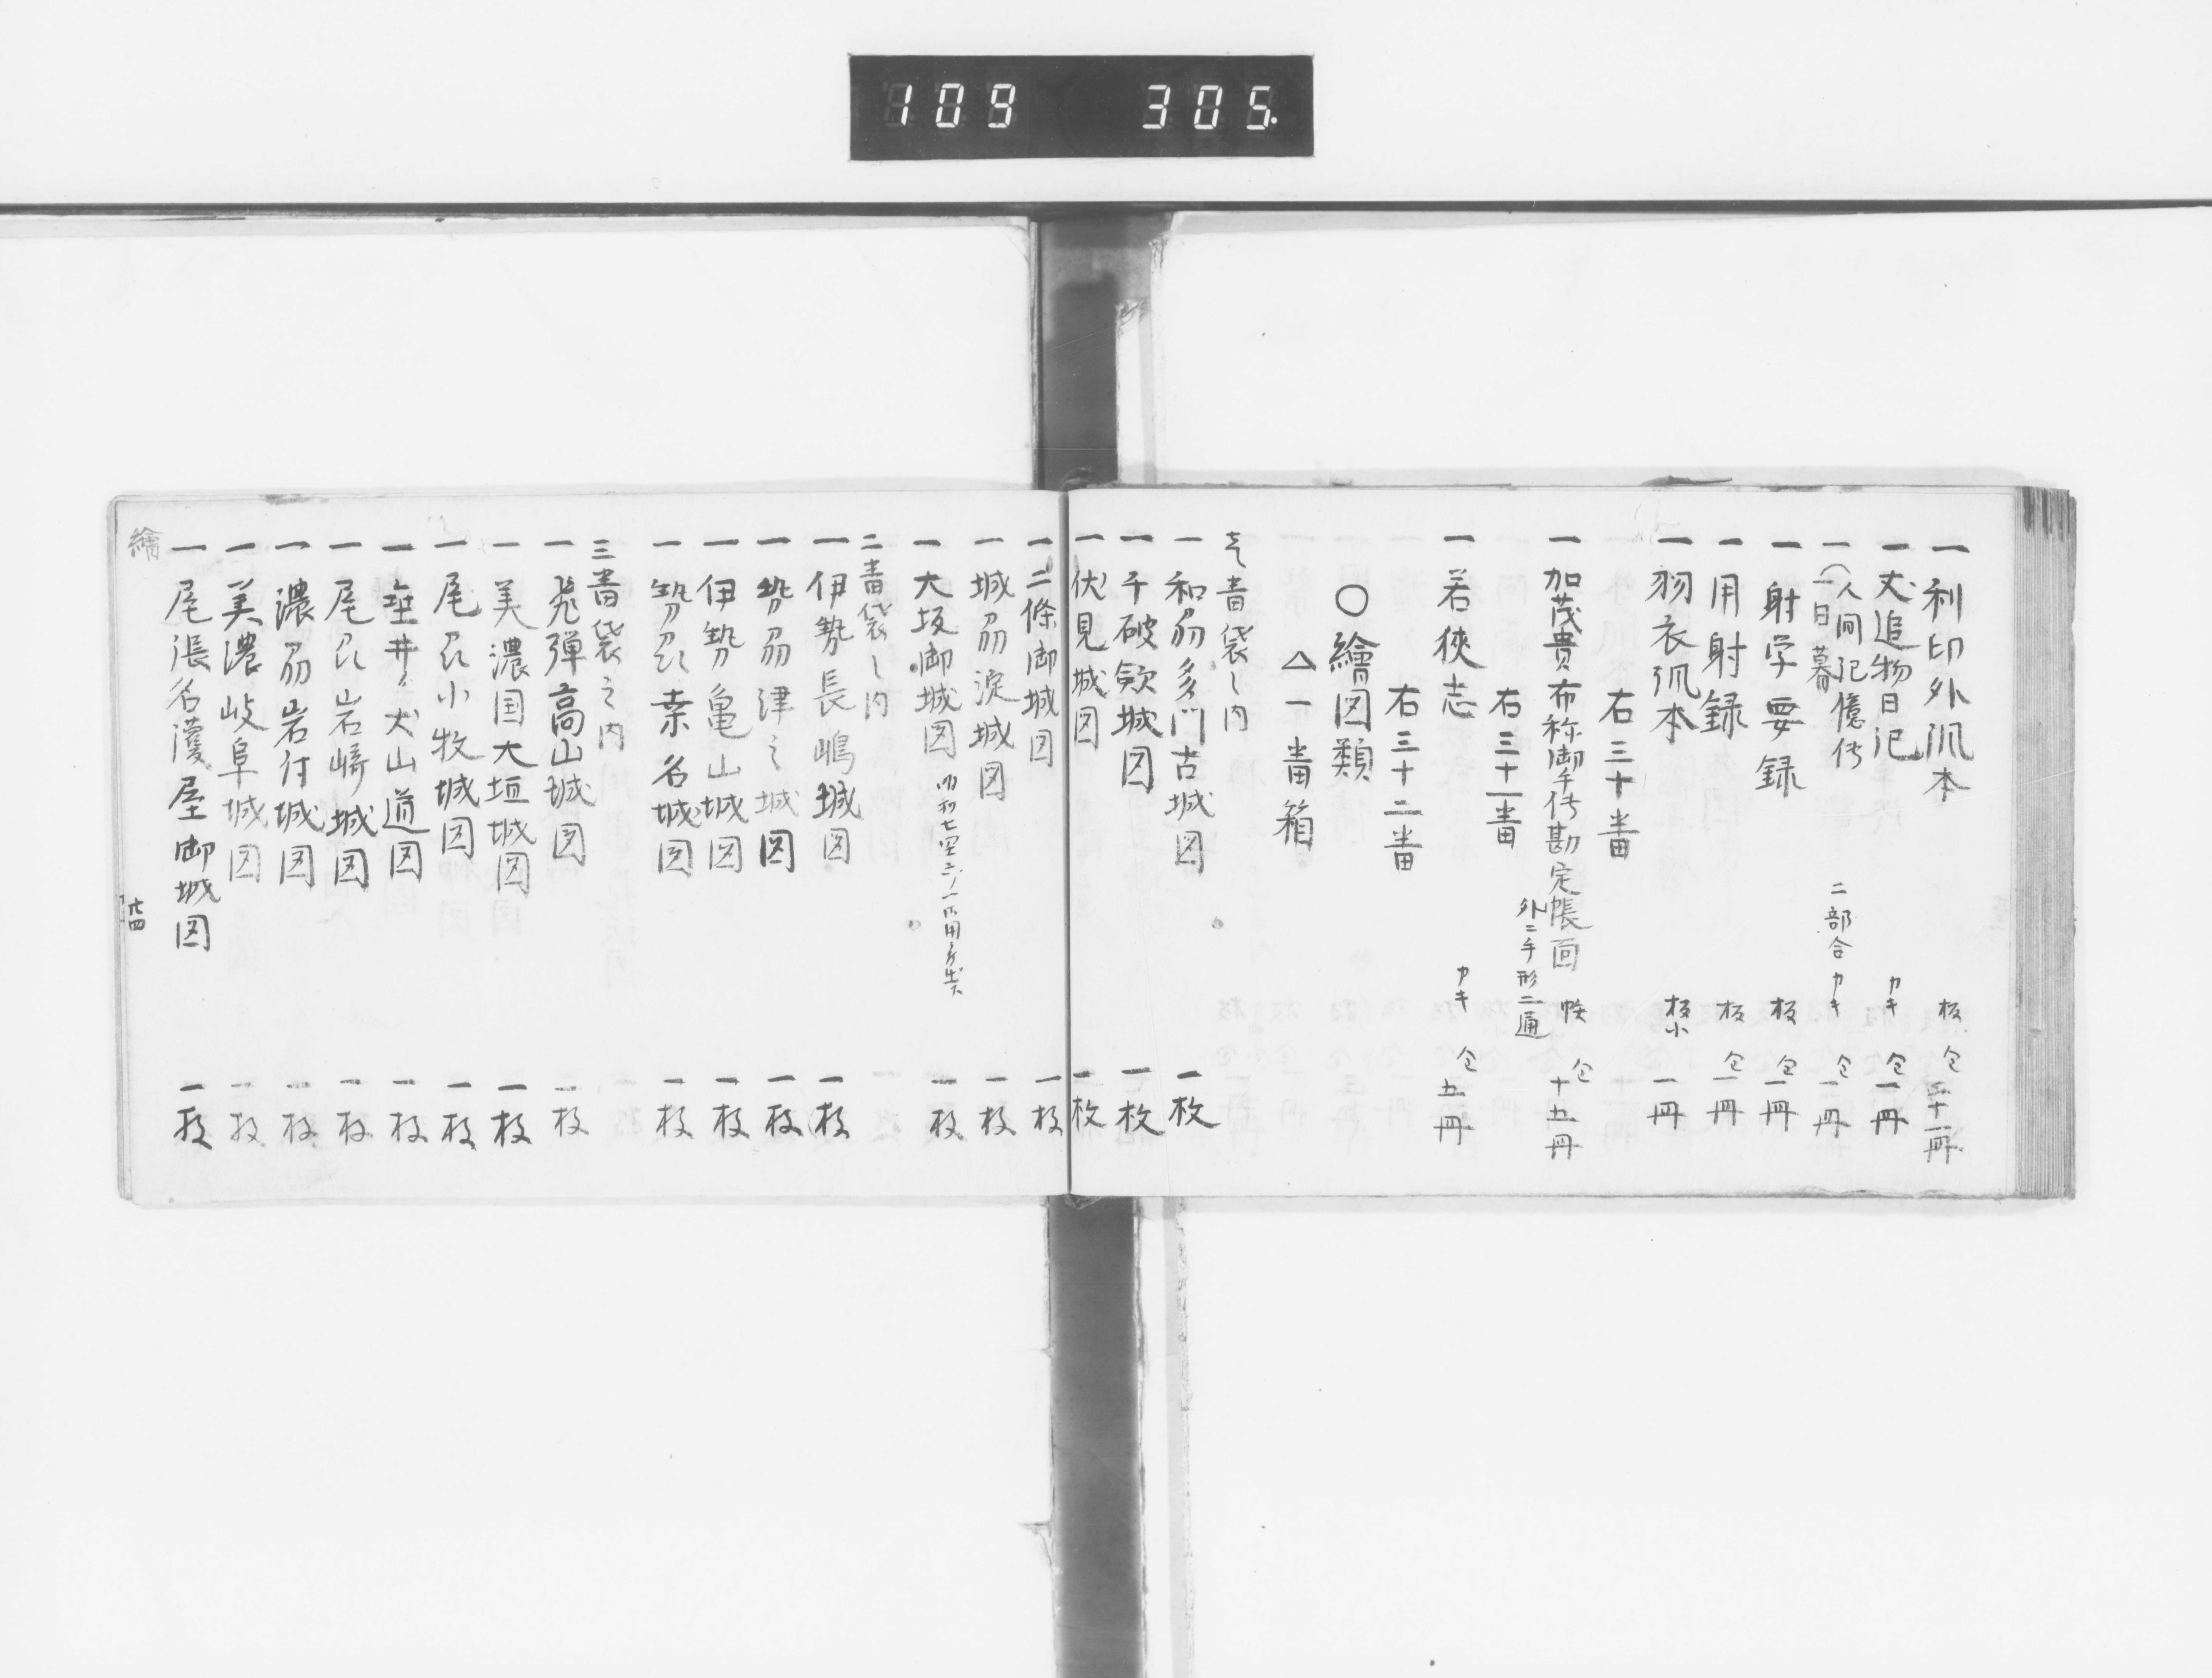 109 305
一 利印外凩本 板 仝 三十一冊
一 犬追物日記 カキ 仝 一冊
一 人間記憶传 二部合 カキ 仝 一冊
一日暮
一 射学要録 板 仝 一冊
一 用射録 板 仝 一冊
一 羽衣凩本 板小 一冊
右三十番
一 加茂貴布称御手传勘定帳面 帙 仝 十五冊
外ニ手形二通
右三十一番
一 若狹志 カキ 仝 五冊
右三十二番
○繪図類
△一番箱
壱番袋之内
一 和刕多門古城図 一枚
一 千破劔城図 一枚
一 伏見城図 一枚
一 二條御城図 一枚
一 城刕淀城図 一枚
一 大坂御城図 一枚
二番袋之内
一 伊勢長嶋城図 一枚
一 勢刕津之城図 一枚
一 伊勢亀山城図 一枚
一 勢刕桒名城図 一枚
三番袋之内
一 飛弾高山城図 一枚
一 美濃国大垣城図 一枚
一 尾刕小牧城図 一枚
一 垂井ゟ犬山道図 一枚
一 尾刕岩﨑城図 一枚
一 濃刕岩付城図 一枚
一 美濃岐阜城図 一枚
一 尾張名護屋御城図 一枚
繪